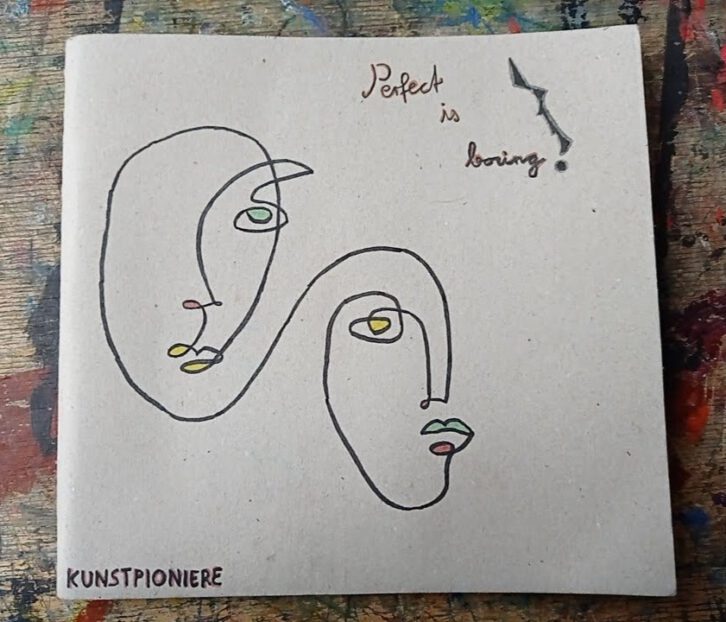 Perfect
is
boring!
KUNSTPIONIERE